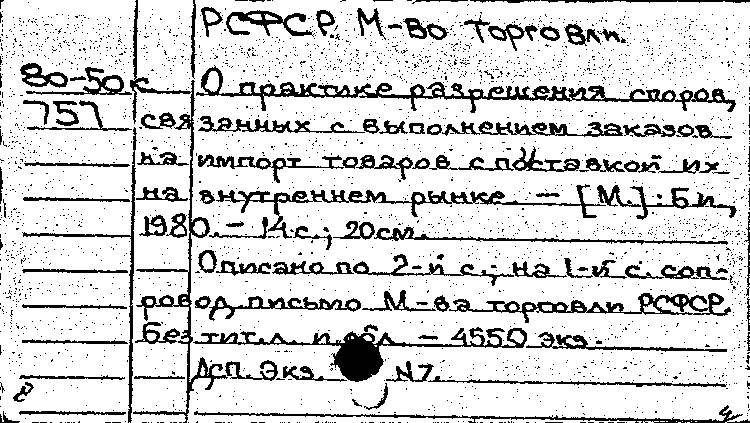 РСФСР. М-во торговли.
80-50с О практике разрешения споров,
757 связанных с выполнением заказов
на импорт товаров с поставкой их
на внутреннем рынке. — [М.]: Б.и.,
1980. — 14 с.; 20 см.
Описано по 2-й с.; на 1-й с. соп-
ровод. письмо М-ва торговли РСФСР.
Без тит.л. и обл. — 4550 экз.
Дсп. Экз. N7.